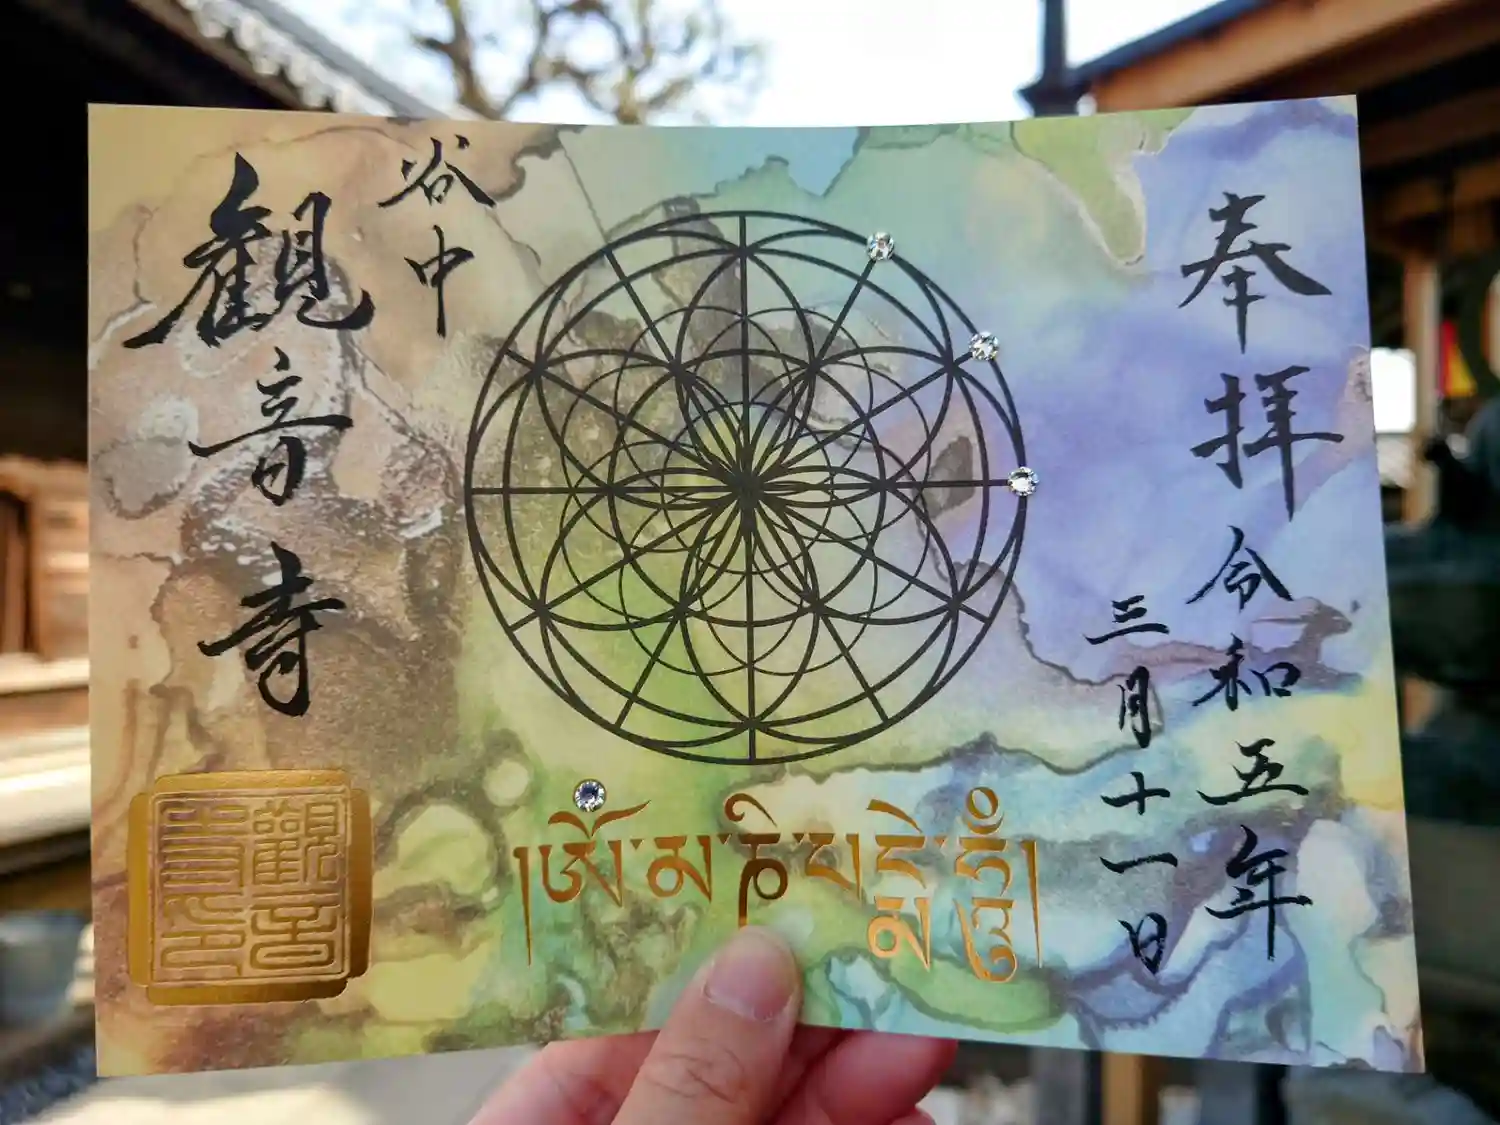 奉拝
令和五年
三月十一日
༄ཨོཾ་མ་ཎི་པདྨེ་ཧཱུྃ།
谷中
観音寺